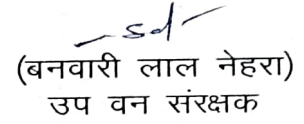 -sd-
(बनवारी लाल नेहरा)
उप वन संरक्षक